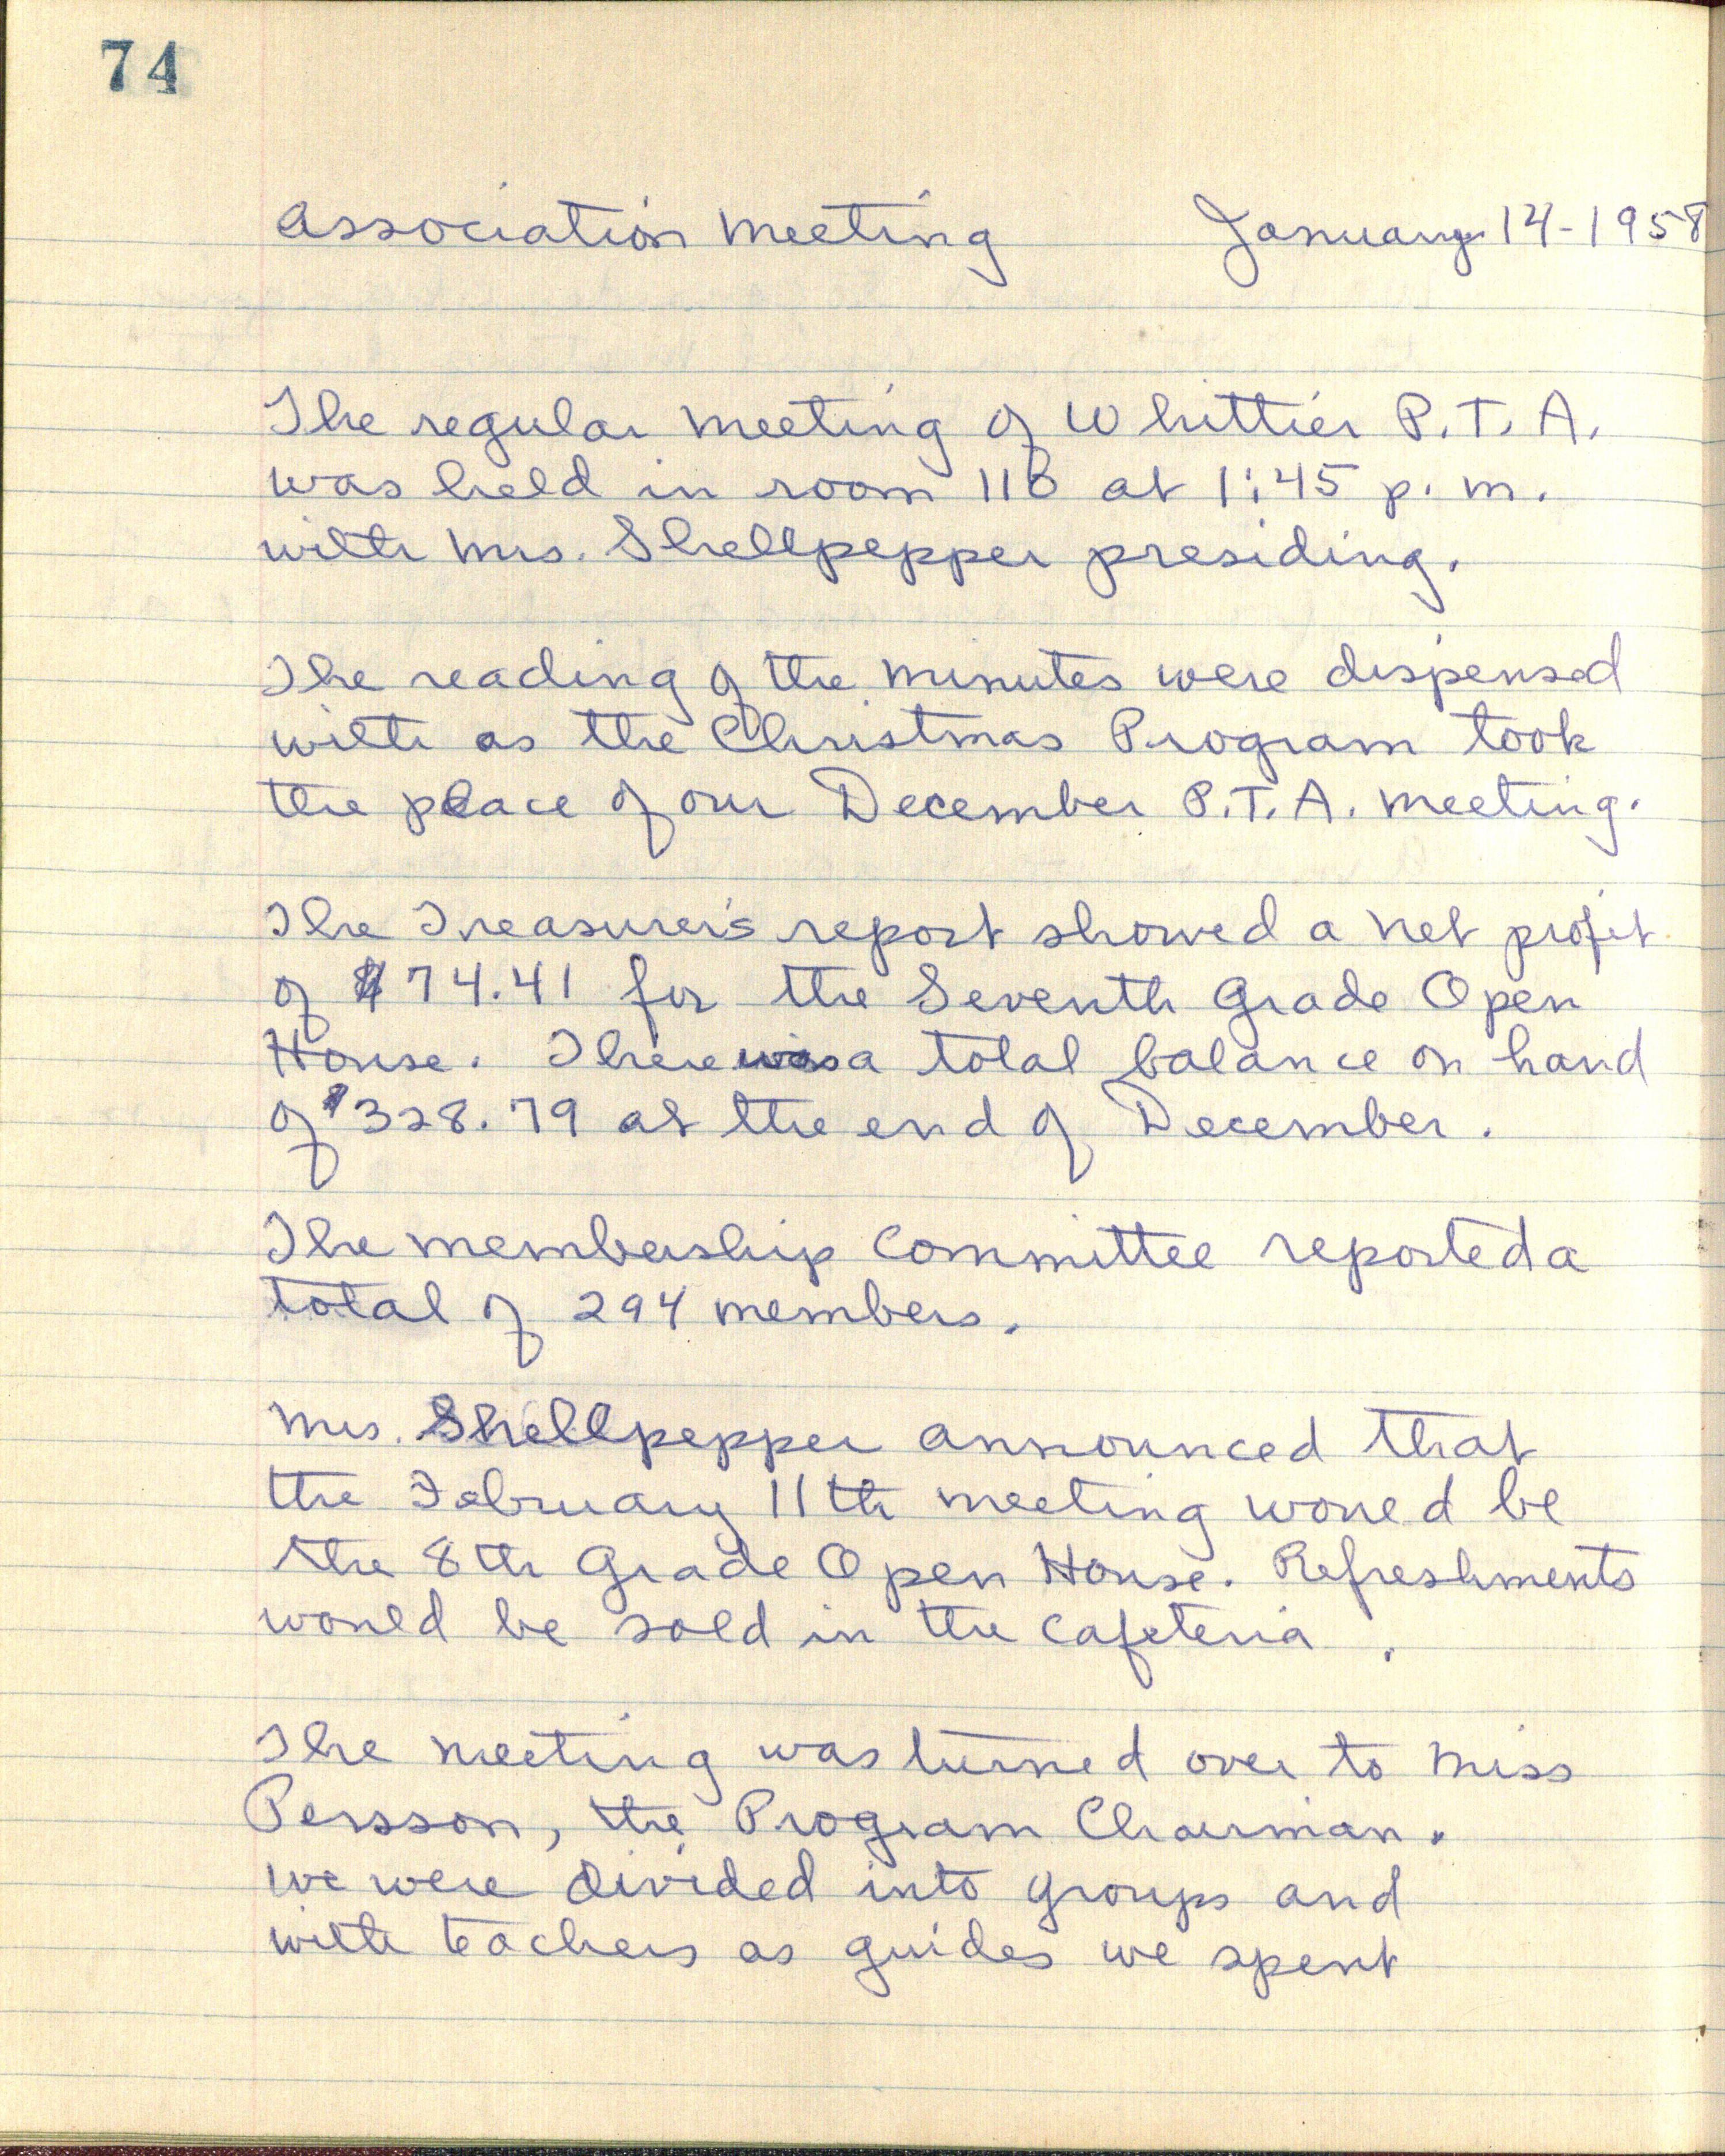 74
Association Meeting January 14-1958
The regular meeting of Whittier P.T.A.
was held in room 116 at 1:45 p.m.
with Mrs. Shellpepper presiding.
The reading of the minutes were dispensed
with as the Christmas Program took
the place of our December P.T.A. meeting.
The Treasurer's report showed a net profit
of $74.41 for the Seventh Grade Open
House. There was a total balance on hand
of $328.79 at the end of December.
The membership committee reported a
total of 294 members.
Mrs. Shellpepper announced that
the February 11th meeting would be
the 8th Grade Open House. Refreshments
would be sold in the cafeteria.
The meeting was turned over to Miss
Persson, the Program Chairman.
We were divided into groups and
with teachers as guides we spent